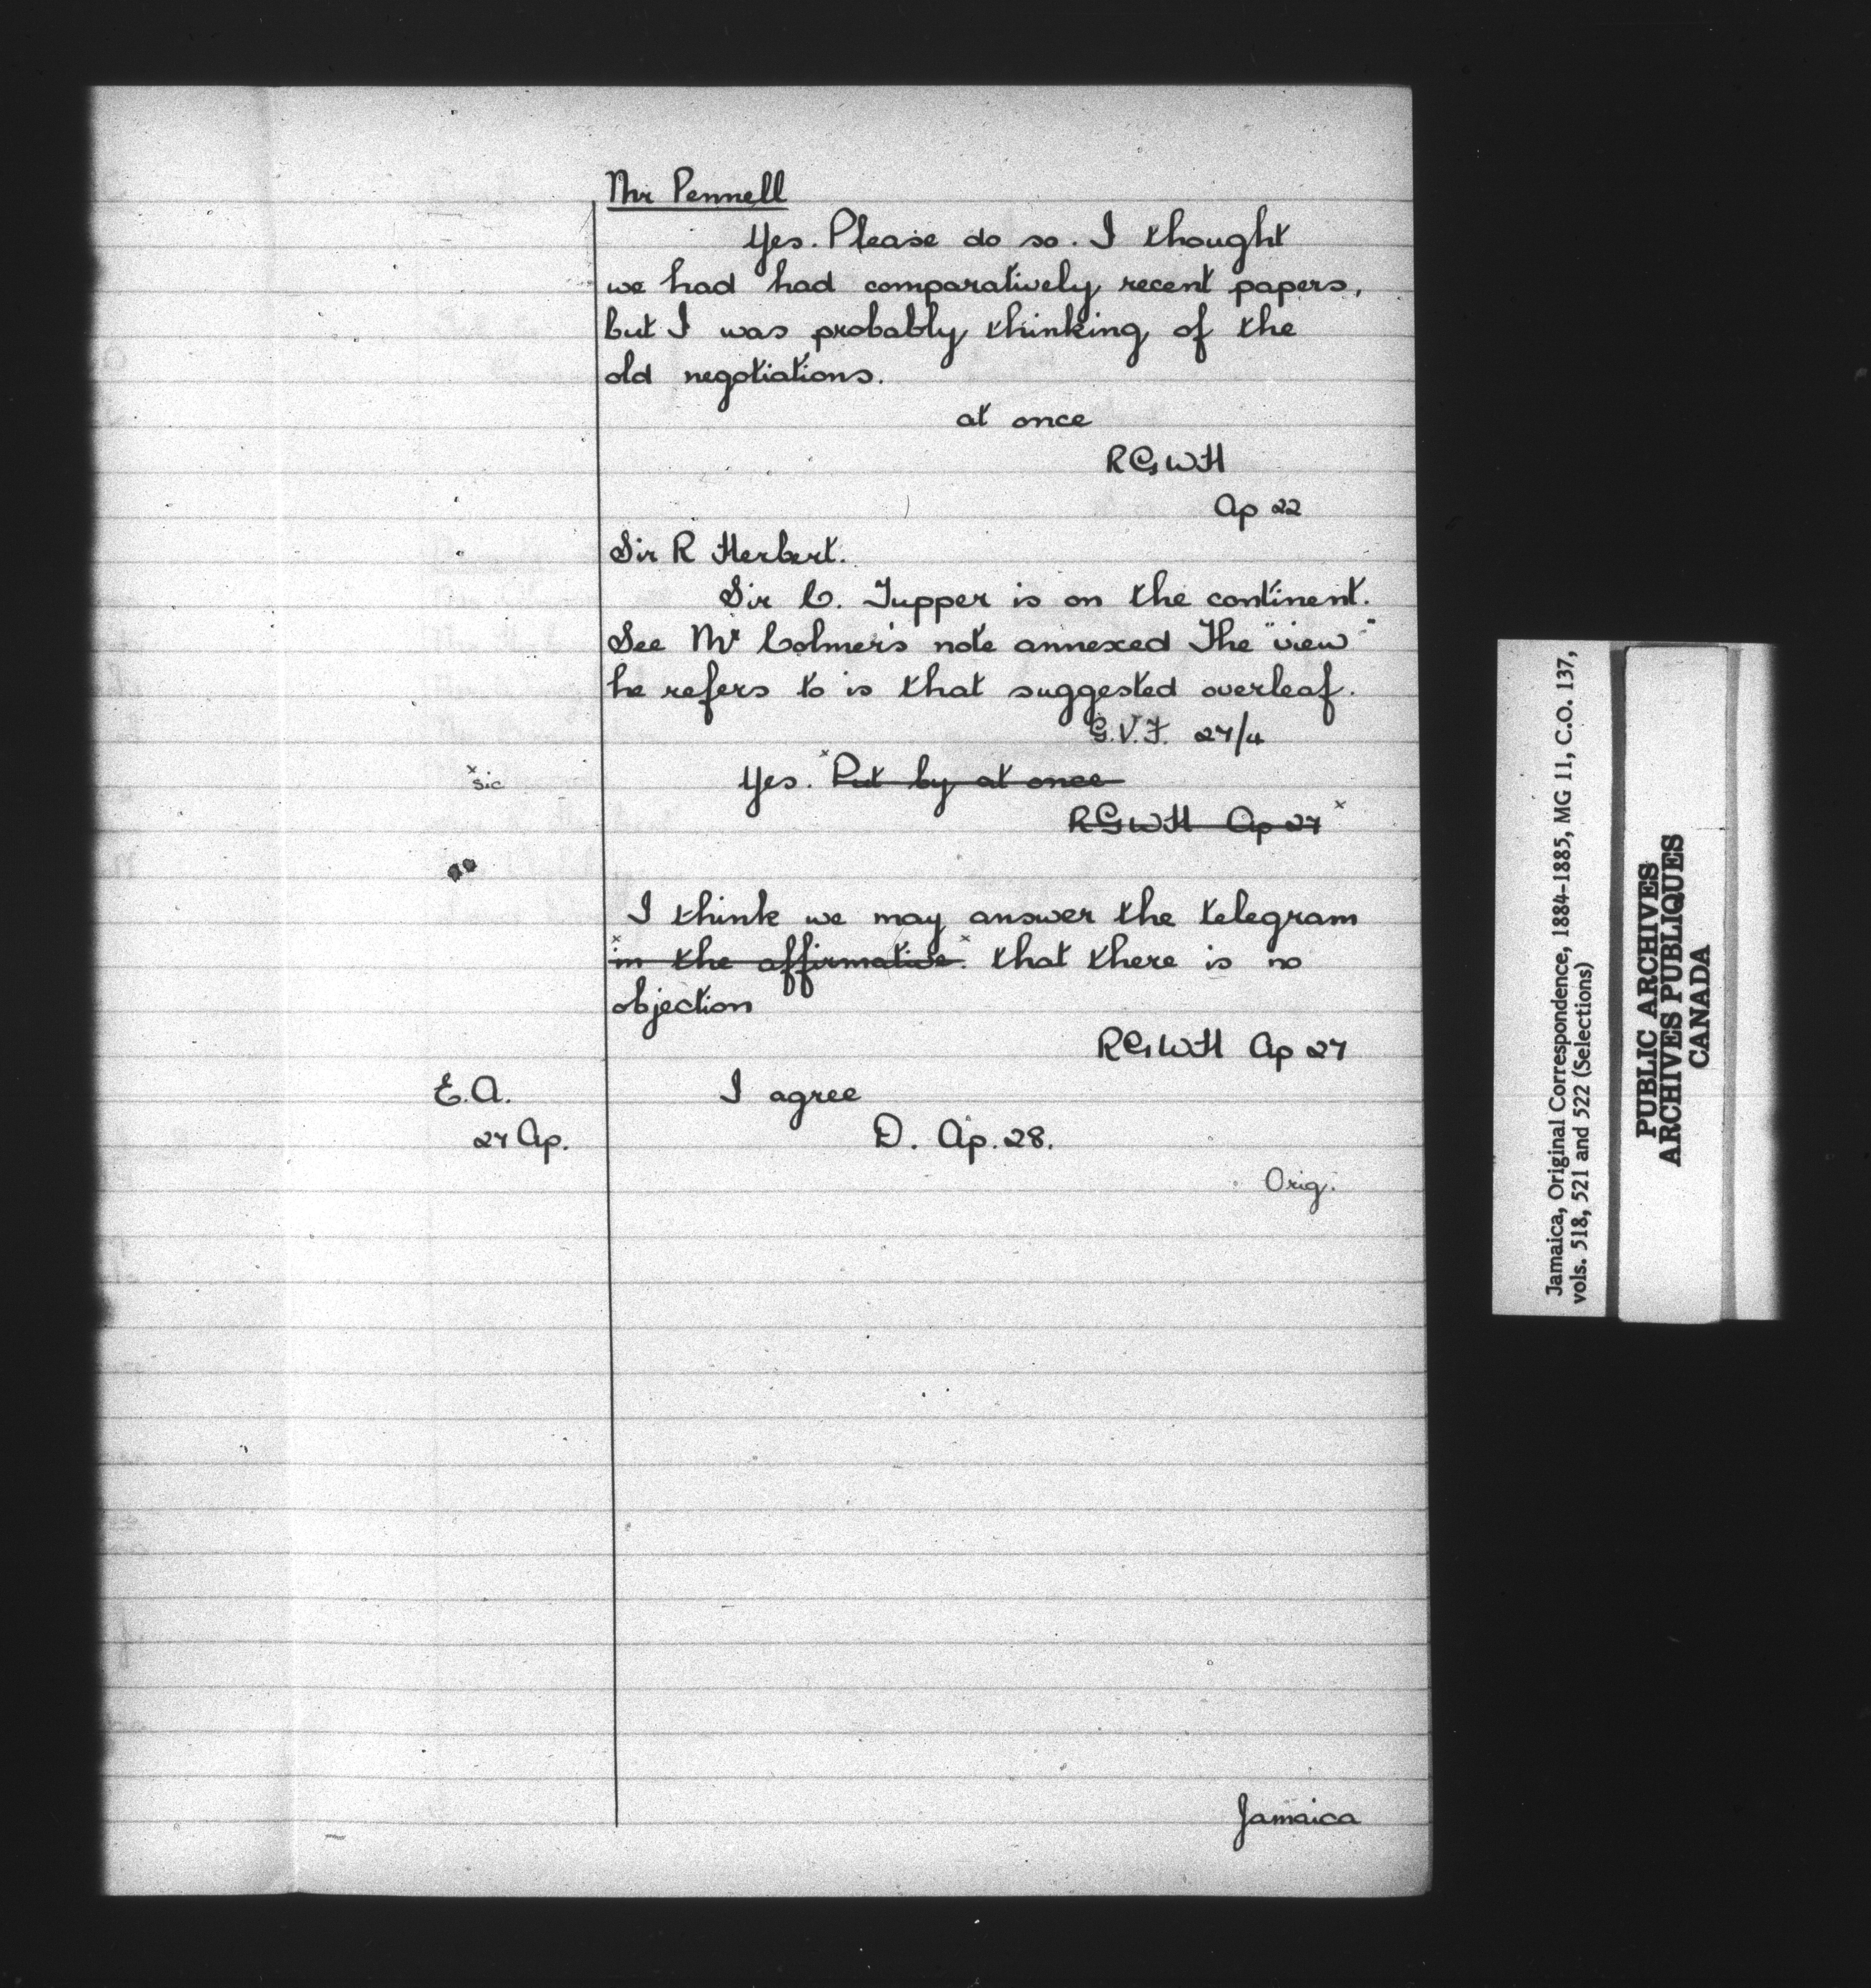 Mr Pennell
Yes. Please do so. I thought
we had had comparatively recent papers,
but I was probably thinking of the
old negotiations.
at once
RGWH
Ap 22
Sir R Herbert.
Sir C. Tupper is on the continent.
See Mr Colmer's note annexed The "view"
he refers to is that suggested overleaf.
G.V.F. 27/4
x sic
Yes. x Put by at once
RGWH Ap 27 x
I think we may answer the telegram
x in the affirmative. x that there is no
objection
RGWH Ap 27
E.A.
27 Ap.
I agree
D. Ap. 28.
Orig.
Jamaica
Jamaica, Original Correspondence, 1884-1885, MG 11, C.O. 137,
vols. 518, 521 and 522 (Selections)
PUBLIC ARCHIVES
ARCHIVES PUBLIQUES
CANADA